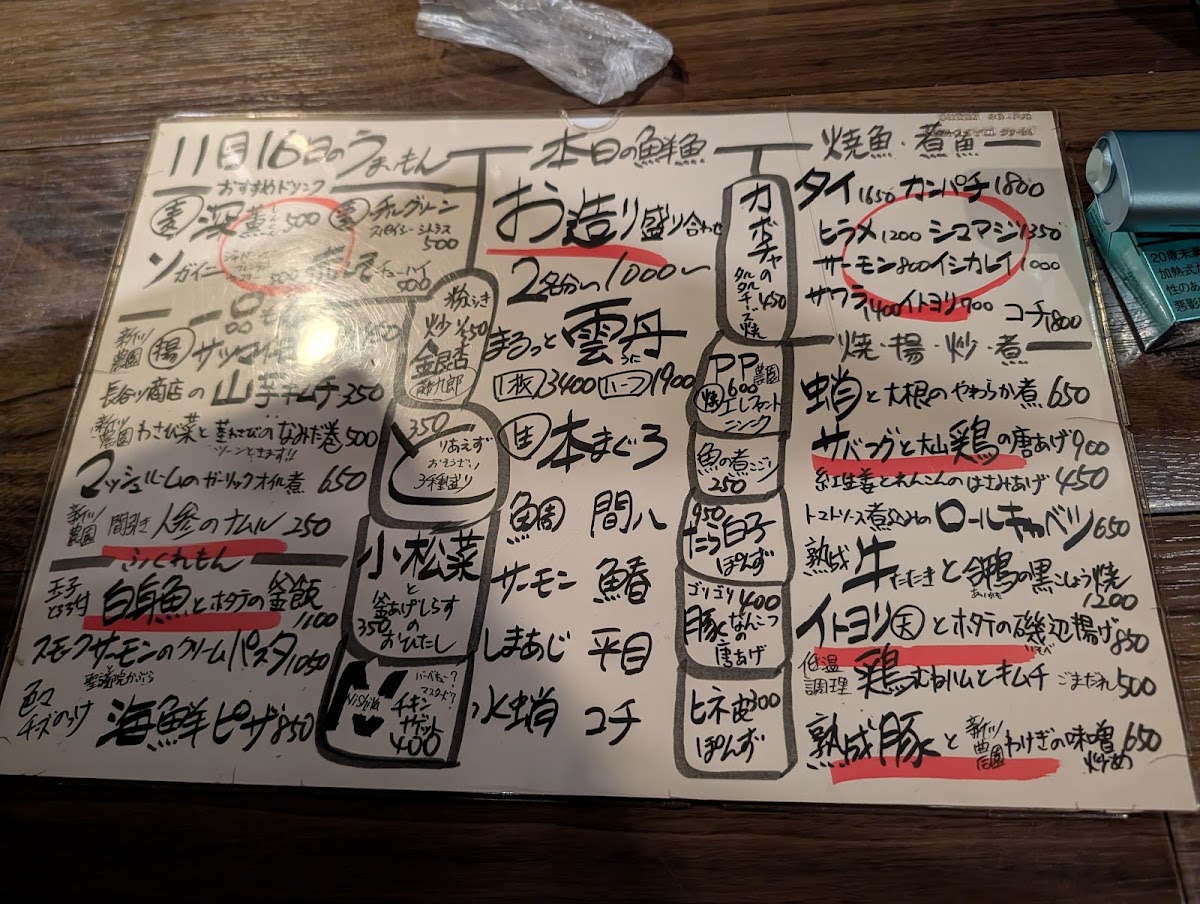 11月16日のうまいもん
おすすめドリンク
深蒸し 500
チルグリーン
スパイシーシトラス
500
ガイニー
チューハイ
500
一品
新川農園 揚 サツマイモ
長谷川商店の山芋キムチ 350
新川農園 わさび菜と茎わさびのなみだ巻 500
ツーンときます!!
マッシュルームのガーリックオイル煮 650
新川農園 間引き人参のナムル 250
ふくれもん
玉子とろろ付 白身魚とホタテの釜飯 1100
スモークサーモンのクリームパスタ 1050
聖護院かぶら
色々チーズのっけ 海鮮ピザ 850
粉ふき
炒 450
銀杏
藤九郎
350
とりあえず
おそうざい
3種盛り
小松菜
と
釜あげしらす
の
350
おひたし
Nishida
バーベキュー?
マスタード?
チキン
ナゲット
400
本日の鮮魚
お造り盛り合わせ
2名分い 1000〜
まるっと雲丹
うに
1枚 3400 ハーフ 1900
生 本まぐろ
鯛 間八
サーモン 鰆
しまあじ 平目
水蛸 コチ
カボチャの
タルタルチーズ焼
450
PP農園
600
焼 エレファント
ニンニク
魚の煮こごり
250
950
たら白子
ぽんず
ゴリゴリ 400
豚なんこつの
唐あげ
ヒネ皮 300
ぽんず
焼魚・煮魚
タイ 1650 カンパチ 1800
ヒラメ 1200 シマアジ 1350
サーモン 800 イシカレイ 1000
サワラ 1400 イトヨリ 900 コチ 1800
焼・揚・炒・煮
蛸と大根のやわらか煮 650
サバフグと大山鶏の唐あげ 900
紅生姜とれんこんのはさみあげ 450
トマトソース煮込みのロールキャベツ 650
熟成 牛たたきと合鴨の黒こしょう焼 1200
あいがも
イトヨリ 天 とホタテの磯辺揚げ 850
いそべ
低温調理 鶏むねハムとキムチ ごまだれ 500
熟成豚と新川農園わけぎの味噌炒め 650
20歳未満
加熱式